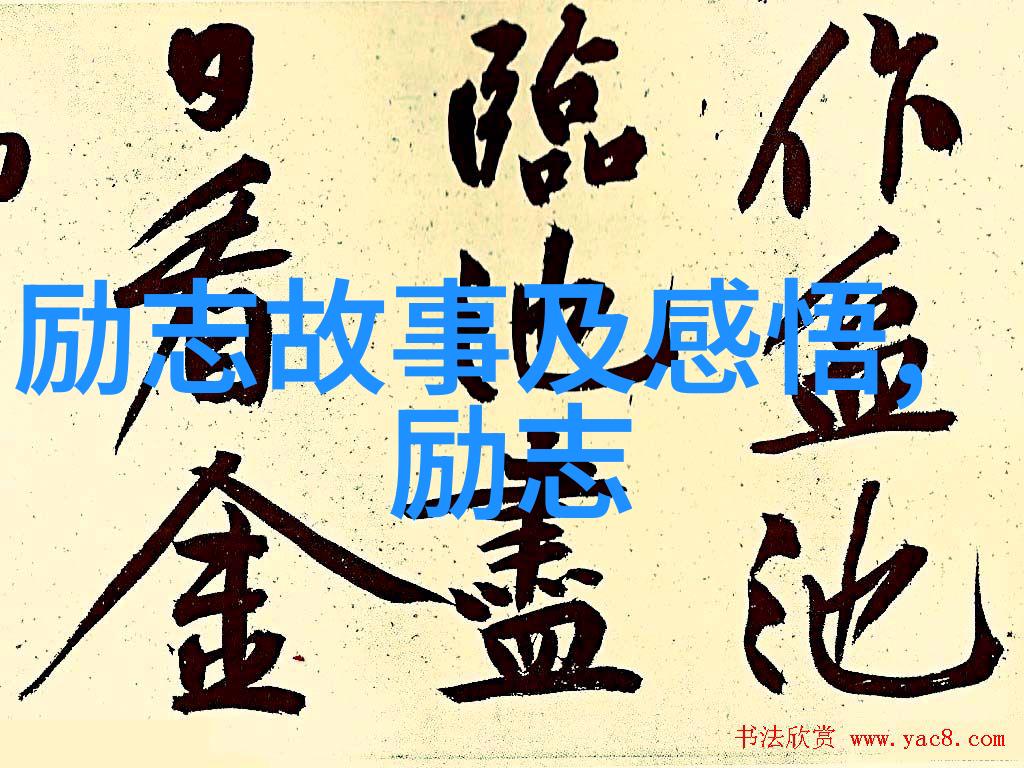 作盆池
臨盡
日看金
励志故事及感悟,
励志
书法欣赏 www.yac8.com